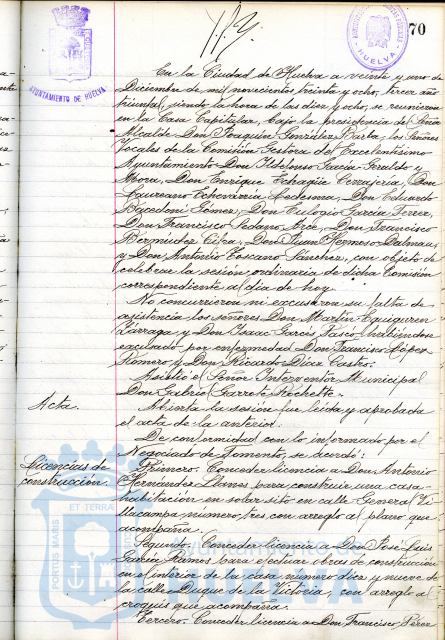 70
AYUNTAMIENTO DE HUELVA
HUELVA
En la Ciudad de Huelva a veinte y uno de
Diciembre de mil novecientos treinta y ocho, tercer año
triunfal, siendo la hora de las diez y ocho, se reunieron
en la Casa Capitular, bajo la presidencia del Señor
Alcalde Don Joaquín González Barba, los Señores
Vocales de la Comisión Gestora del Excelentísimo
Ayuntamiento Don Ildefonso García Geraldo y
Mora, Don Enrique Echagüe Cerrajería, Don
Laureano Echevarría Ledesma, Don Eduardo
Gómez, Don Eulogio García Ferrer,
Don Francisco Sedano Arce, Don Francisco
Bermúdez Don Juan Hermoso Dalmau,
y Don Antonio Toscano Sánchez, con objeto de
celebrar la sesión ordinaria de dicha Comisión
correspondiente al día de hoy.
No concurrieron ni excusaron su falta de
asistencia los señores Don Martín Eguiguren
Lárraga y Don Isaac Garcés habiéndose
excusado por enfermedad Don Francisco López
Romero y Don Ricardo Díaz Castro.
Asistió el Señor Interventor Municipal
Don Gabriel Garrote
Acta.
Abierta la sesión fué leída y aprobada
el acta de la anterior.
Licencias de
construcción.
De conformidad con lo informado por el
Negociado de Fomento, se acordó:
Primero: Conceder licencia a Don Antonio
Fernández Llanes para construir una casa-
habitación en solar sito en calle General Vi-
llacampa número, tres con arreglo al plano que
acompaña.
Segundo: Conceder licencia a Don José Luis
García Ramos para efectuar obras de construcción
en el interior de la casa número diez y nueve de
la calle Duque de la Victoria, con arreglo al
croquis que acompaña.
Tercero: Conceder licencia a Don Francisco Pérez
PORTUS MARIS ET TERRAE
Ayuntamiento de
HUELVA